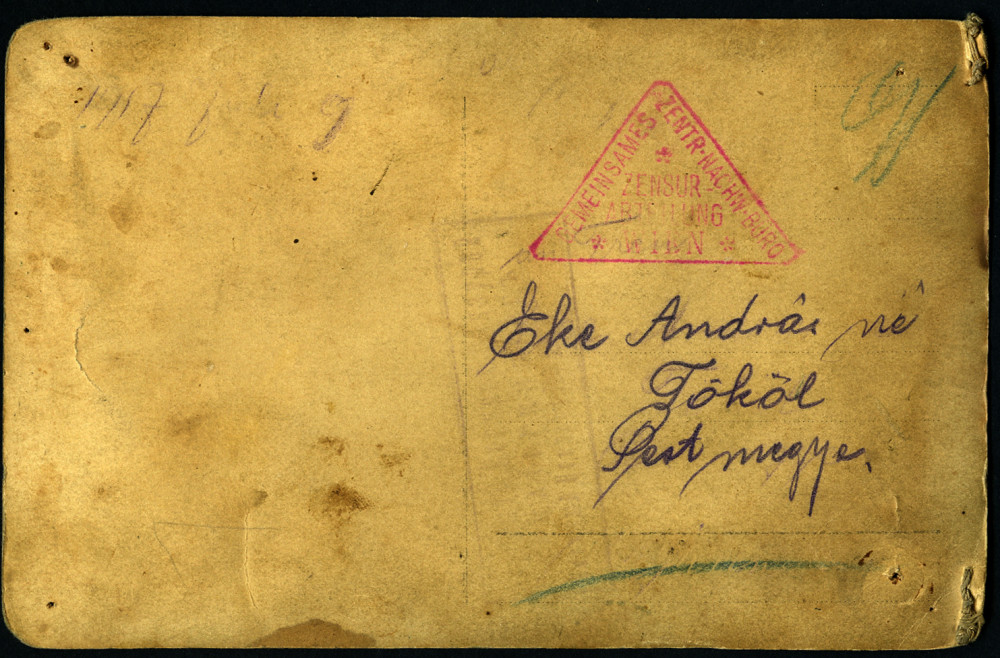 GEMEINSAMES ZENTR. NACHW. BURO
ZENSUR-
ABTEILUNG
WIEN
Eke András né
Tököl
Pest megye.